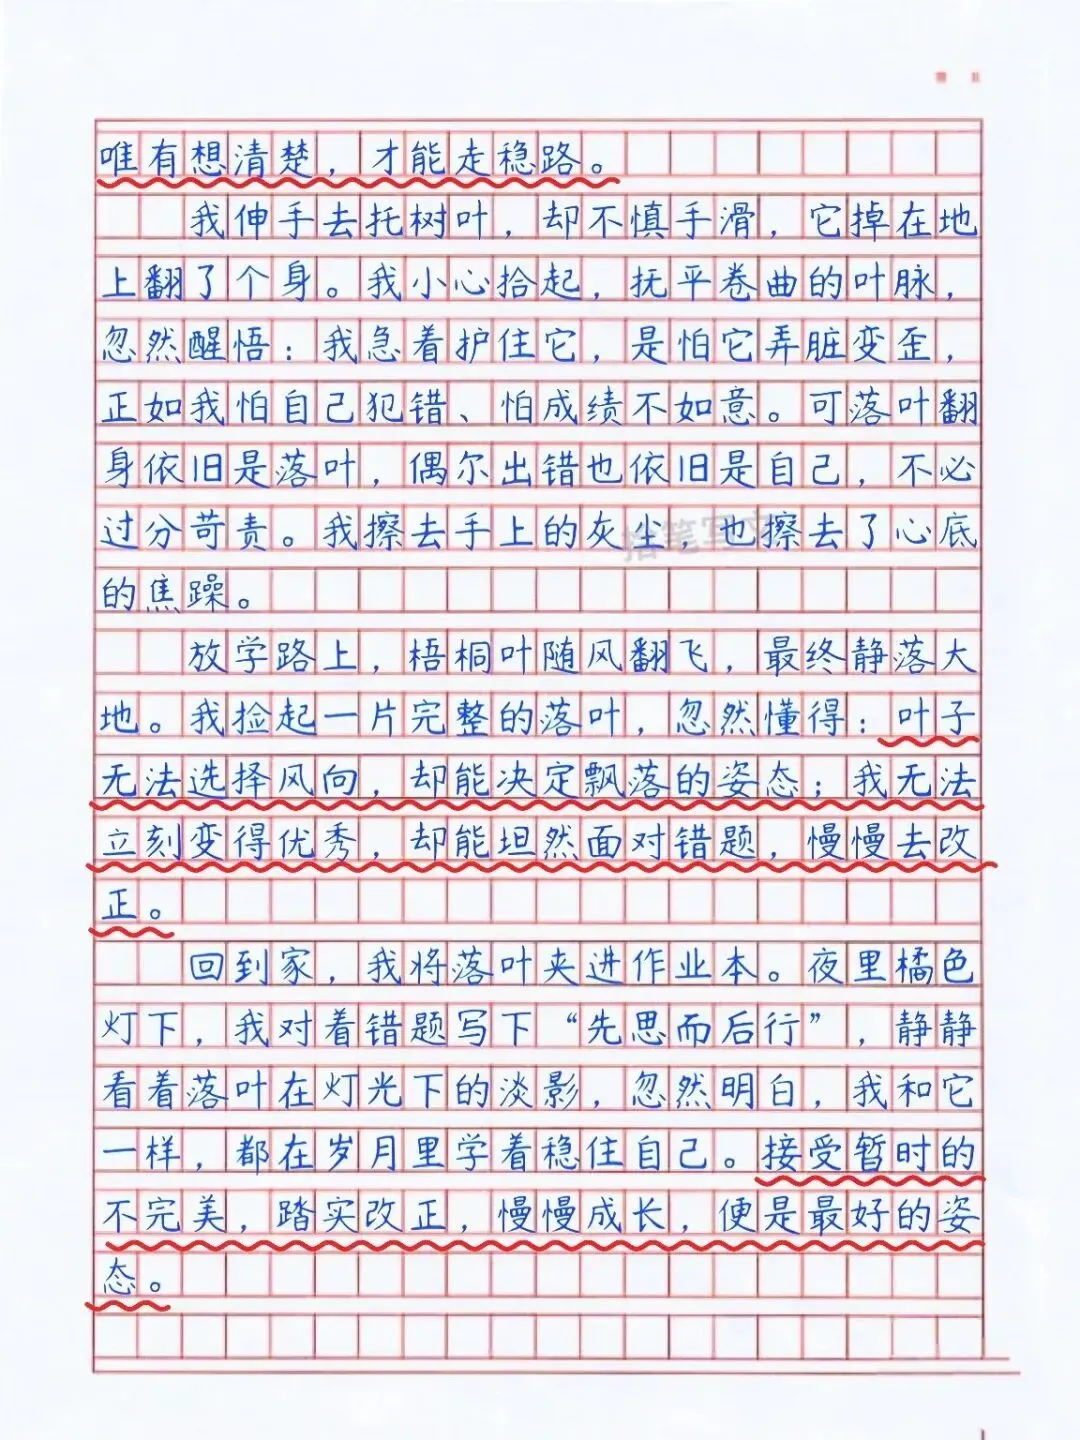 唯有想清楚，才能走稳路。
我伸手去托树叶，却不慎手滑，它掉在地
上翻了个身。我小心拾起，抚平卷曲的叶脉，
忽然醒悟：我急着护住它，是怕它弄脏变歪，
正如我怕自己犯错、怕成绩不如意。可落叶翻
身依旧是落叶，偶尔出错也依旧是自己，不必
过分苛责。我擦去手上的灰尘，也擦去了心底
的焦躁。
放学路上，梧桐叶随风翻飞，最终静落大
地。我捡起一片完整的落叶，忽然懂得：叶子
无法选择风向，却能决定飘落的姿态；我无法
立刻变得优秀，却能坦然面对错题，慢慢去改
正。
回到家，我将落叶夹进作业本。夜里橘色
灯下，我对着错题写下“先思而后行”，静静
看着落叶在灯光下的淡影，忽然明白，我和它
一样，都在岁月里学着稳住自己。接受暂时的
不完美，踏实改正，慢慢成长，便是最好的姿
态。